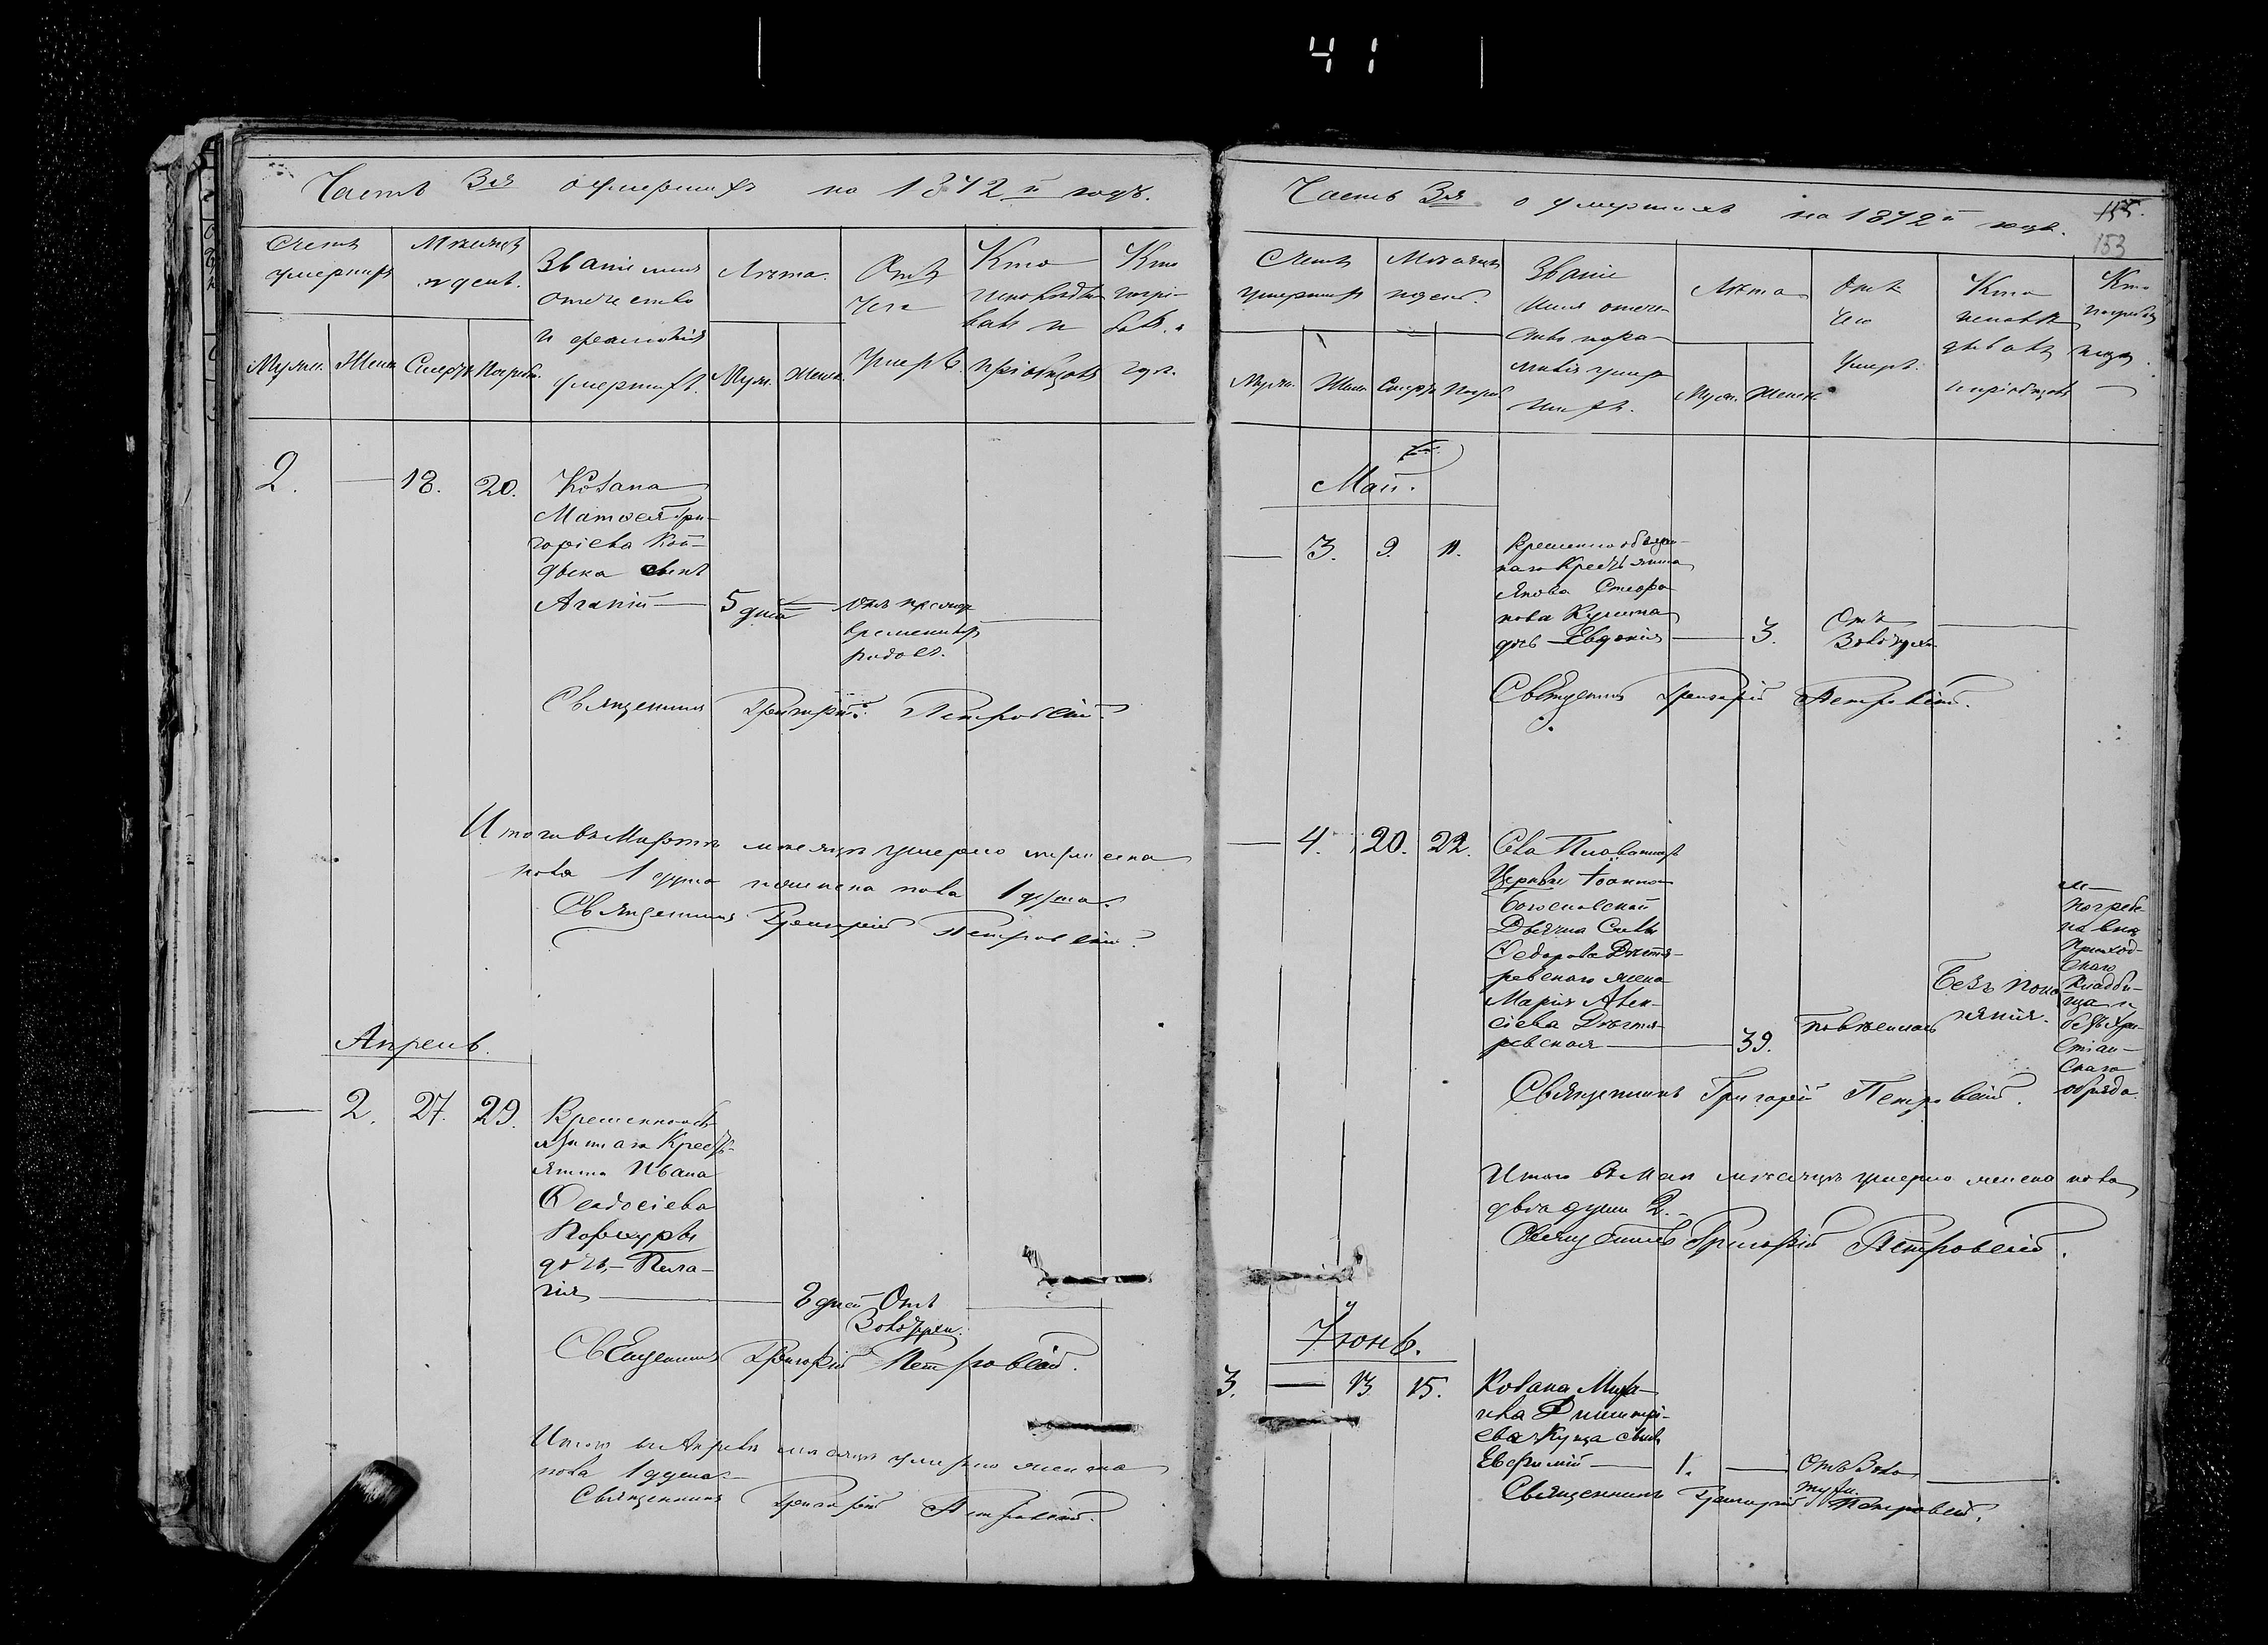 41
Часть 3я о умершихъ на 1872й годъ.
Счетъ
умершихъ
Мѣсяцъ
и день.
Званіе имя
отечество
и фамилія
умершихъ.
Лѣта.
Отъ
чего
умеръ.
Кто
исповѣды
валъ и
пріобщалъ
Кто
погре-
балъ и
гдѣ.
Мужен.
Женск
Смерти
Погреб.
Муж.
Женск.
2. — 18. 20. Козака
Матвея Гри-
горіева
сынъ
5 дней
временныхъ
родовъ.
Священникъ Григорій Петровскій.
Итого въ Мартѣ мѣсяцѣ умерло мужеска
пола 1 душа и женска пола 1 душа.
Священникъ Григорій Петровскій.
Апрель.
— 2. 27. 29. Временнообя-
заннаго Кресть-
янина Ивана
Феодосіева
дочь, Пела-
гія — 2 дней Отъ
Золотухи.
Священникъ Григорій Петровскій.
Итого въ Апрелѣ мѣсяцѣ умерло женска
пола 1 душа
Священникъ Григорій Петровскій.
Часть 3я о умершихъ на 1872й годъ.
155.
153
Счетъ
умершихъ
Мѣсяцъ
и день.
Званіе
имя отече-
ство и фа-
милія умер
шихъ.
Лѣта
Отъ
чего
умеръ.
Кто
исповѣ
дывалъ
и пріобщалъ
Кто
погребалъ
и гдѣ
Мужен.
Женск
Смерти
Погреб
Муж.
Женск.
Май.
— 3. 9. 11. Временнообязан-
наго Крестьянина
Якова Стефа
нова
дочь Евдокія — 3. Отъ
Золотухи
Священникъ Григорій Петровскій.
— 4. 20. 22. Села
Церкви Іоанно
Богословской
Дьячка
Федорова Дегтя-
ревскаго жена
Марія Алек-
сіева Дегтя-
ревская — 39. повѣсилась
Безъ пока
янія.
погребе-
на внѣ
приход-
скаго
кладби-
ща и
безъ хри-
стіан-
скаго
обряда
Священникъ Григорій Петровскій.
Итого въ Маѣ мѣсяцѣ умерло женска пола
двѣ души 2.
Священникъ Григорій Петровскій.
Іюнь.
3. — 13 15. Козака Миха-
ила Димитрі-
ева Куца сынъ
Евфимій — 1. — Отъ Золо
тухи.
Священникъ Григорій Петровскій.